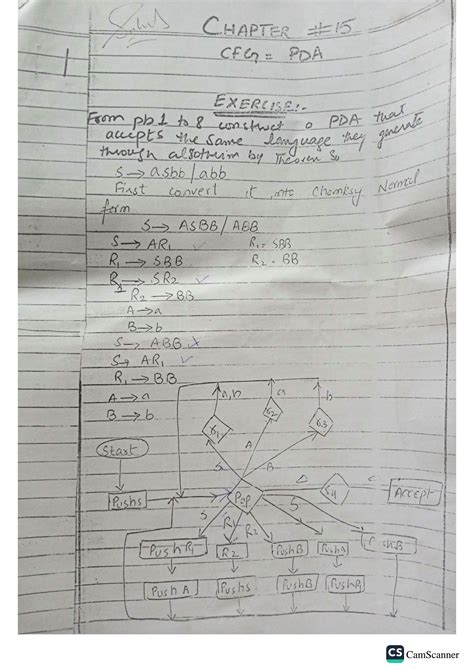 CHAPTER #15
CFG = PDA
1
EXERCISE:-
From pb 1 to 8 construct a PDA that
accepts the same language they generate
through algotherim by Theorem 30
S → aSbb / abb
First convert it into Chomksy Normal
form
S → ASBB / ABB
S → AR1 ✓ R1 = SBB
R1 → SBB R2 = BB
R1 → SR2 ✓
R2 → BB
A → a
B → b
S → ABB ✗
S → AR1 ✓
R1 → BB
A → a
B → b
a,b a b
R1 R2 R3
Start
S A B
Push S
POP
Δ R4 Accept
S R1 R2 S
Push R1 R2 Push B Push B
Push A Push S Push B Push A
CS CamScanner